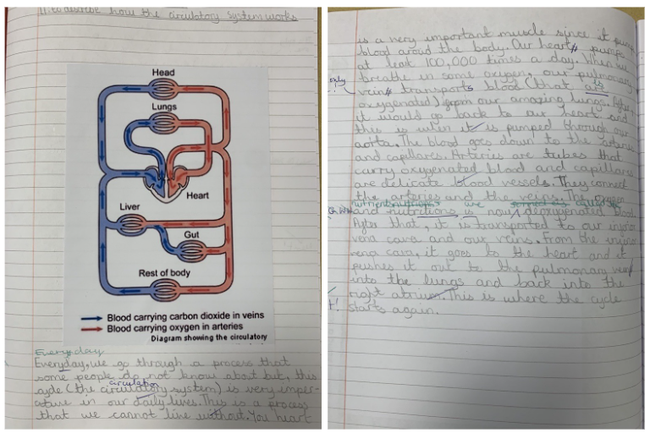 to describe how the circulatory system works
Head
Lungs
Heart
Liver
Gut
Rest of body
Blood carrying carbon dioxide in veins
Blood carrying oxygen in arteries
Diagram showing the circulatory
Everyday
Everyday, we go through a process that
some people do not know about but, this
circulation
cycle (the circulatory system) is very imper-
ative in our daily lives. This is a process
that we cannot live without. You heart
is a very important muscle since it pump
blood aroud the body. Our heart pumps
at least 100,000 times a day. When we
breathe in some oxygen, our pulmonary
vein transports blood (that are
oxygenated) from our amazing lungs. After
it would go back to our heart and
this is when it is pumped through our
aorta. The blood goes down to the
and capillaries. Arteries are tubes that
carry oxygenated blood and capillaries
are delicate blood vessels. They connect
the arteries and the veins. The
and nutritions is now deoxygenated blood
After that, it is transported to our
vena cava and our veins. From the
vena cava, it goes to the heart and it
pushes it out to the pulmonary
into the lungs and back into the
right atrium. This is where the cycle
starts again.